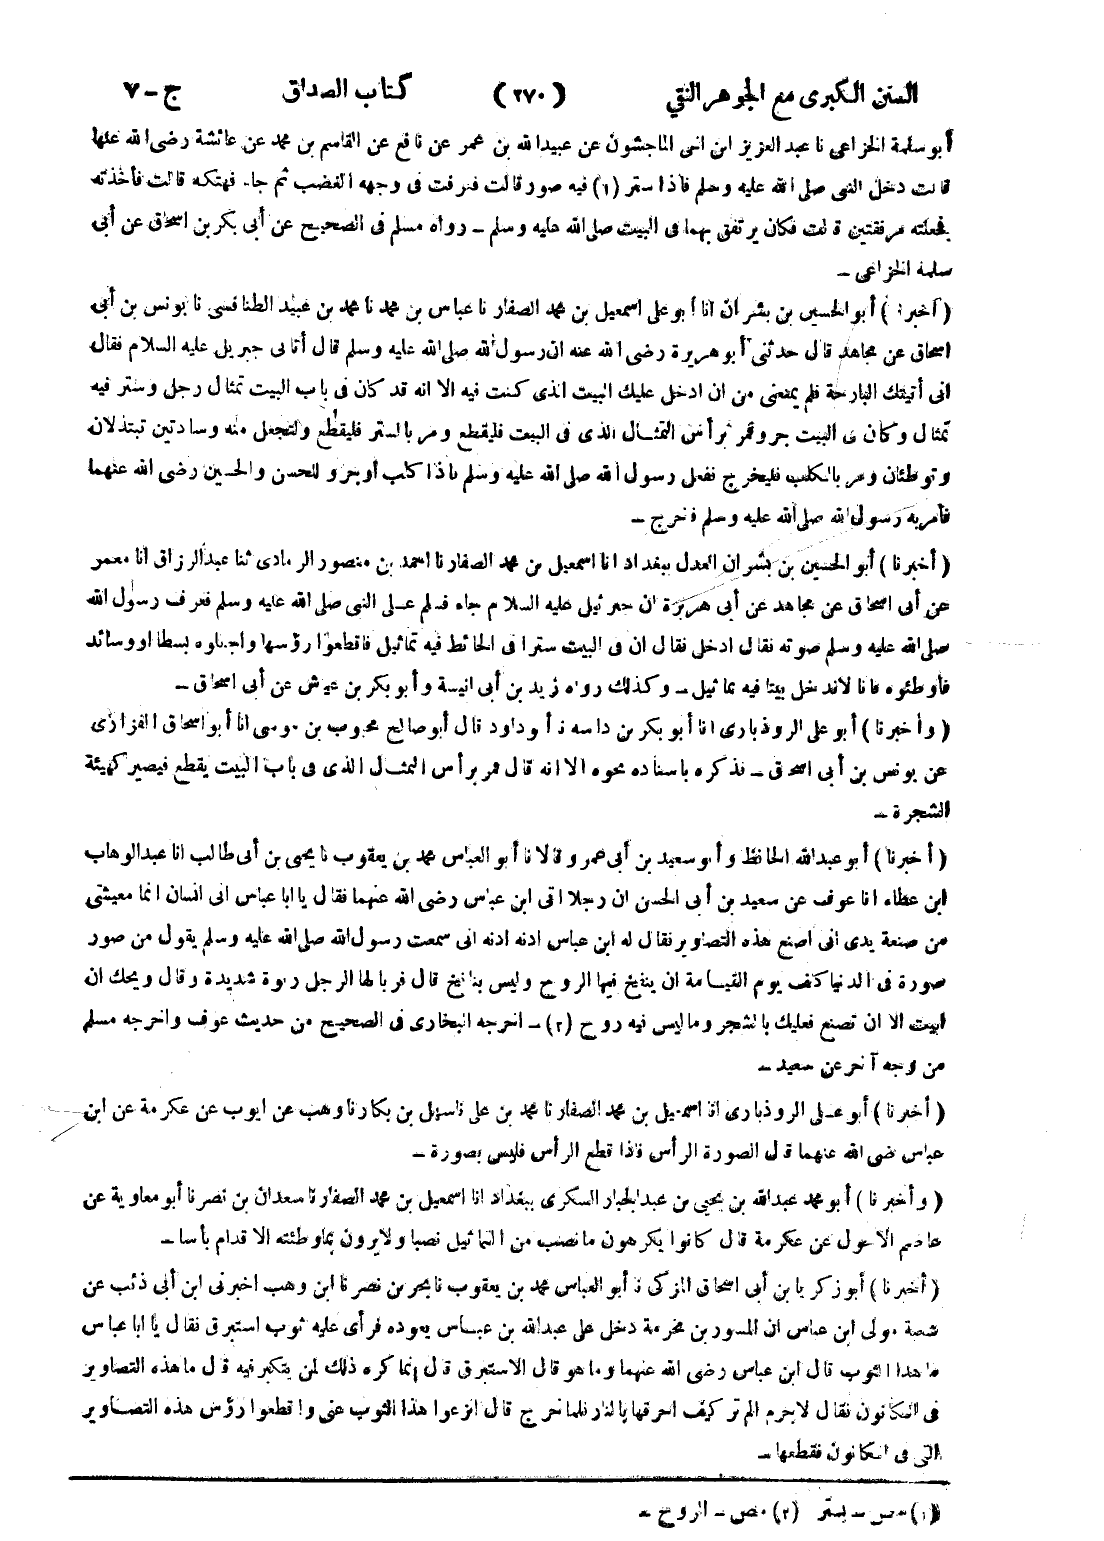 السنن الكبرى مع الجوهر النقي (٢٧٠) كتاب الصداق ج - ٧
أبو سلمة الخزاعي نا عبد العزيز ابن اخي الماجشون عن عبيد الله بن عمر عن نافع عن القاسم بن محمد عن عائشة رضي الله عنها
قالت دخل النبي صلى الله عليه وسلم فاذا ستر (١) فيه صور قالت فعرفت في وجهه الغضب ثم جاء فهتكه قالت فأخذته
فجعلته مرفقتين قالت فكان يرتفق بهما في البيت صلى الله عليه وسلم - رواه مسلم في الصحيح عن أبي بكر بن اسحاق عن أبي
سلمة الخزاعي -
(أخبرنا) أبو الحسين بن بشران انا أبو علي اسمعيل بن محمد الصفار نا عباس بن محمد نا محمد بن عبيد الطنافسي نا يونس بن أبي
اسحاق عن مجاهد قال حدثني أبو هريرة رضي الله عنه ان رسول الله صلى الله عليه وسلم قال أتاني جبريل عليه السلام فقال
اني أتيتك البارحة فلم يمنعني من ان ادخل عليك البيت الذي كنت فيه الا انه قد كان في باب البيت تمثال رجل وستر فيه
تمثال وكان في البيت جرو فمر برأس التمثال الذي في البيت فليقطع ومر بالستر فليقطع ولتجعل منه وسادتين تبتذلان
وتوطئان ومر بالكلب فليخرج ففعل رسول الله صلى الله عليه وسلم فاذا كلب أو جرو للحسن والحسين رضي الله عنهما
فأمر به رسول الله صلى الله عليه وسلم فاخرج -
(أخبرنا) أبو الحسين بن بشران العدل ببغداد انا اسمعيل بن محمد الصفار نا احمد بن منصور الرمادي ثنا عبد الرزاق انا معمر
عن أبي اسحاق عن مجاهد عن أبي هريرة ان جبرئيل عليه السلام جاء فسلم على النبي صلى الله عليه وسلم فعرف رسول الله
صلى الله عليه وسلم صوته فقال ادخل فقال ان في البيت سترا في الحائط فيه تماثيل فاقطعوا رؤسها واجعلوه بسطا او وسائد
فأوطئوه فانا لا ندخل بيتا فيه تماثيل - وكذلك رواه زيد بن أبي انيسة وأبو بكر بن عياش عن أبي اسحاق -
(وأخبرنا) أبو علي الروذباري انا أبو بكر بن داسه نا أبو داود قال أبو صالح محبوب بن موسى انا أبو اسحاق الفزاري
عن يونس بن أبي اسحق - فذكره باسناده نحوه الا انه قال فمر برأس التمثال الذي في باب البيت يقطع فيصير كهيئة
الشجرة -
(أخبرنا) أبو عبد الله الحافظ وأبو سعيد بن أبي عمرو قالا نا أبو العباس محمد بن يعقوب نا يحيى بن أبي طالب انا عبد الوهاب
ابن عطاء انا عوف عن سعيد بن أبي الحسن ان رجلا اتى ابن عباس رضي الله عنهما فقال يا ابا عباس اني انسان انما معيشتي
من صنعة يدي اني اصنع هذه التصاوير فقال له ابن عباس ادنه ادنه اني سمعت رسول الله صلى الله عليه وسلم يقول من صور
صورة في الدنيا كلف يوم القيامة ان ينفخ فيها الروح وليس بنافخ قال فربا لها الرجل ربوة شديدة وقال ويحك ان
ابيت الا ان تصنع فعليك بالشجر وما ليس فيه روح (٢) - اخرجه البخاري في الصحيح من حديث عوف واخرجه مسلم
من وجه آخر عن سعيد -
(أخبرنا) أبو علي الروذباري انا اسمعيل بن محمد الصفار نا محمد بن علي نا سهل بن بكار نا وهب عن ايوب عن عكرمة عن ابن
عباس رضي الله عنهما قال الصورة الرأس فاذا قطع الرأس فليس بصورة -
(وأخبرنا) أبو محمد عبد الله بن يحيى بن عبد الجبار السكري ببغداد انا اسمعيل بن محمد الصفار نا سعدان بن نصر نا أبو معاوية عن
عاصم الاحول عن عكرمة قال كانوا يكرهون ما نصب من التماثيل نصبا ولا يرون بما وطئته الاقدام بأسا -
(أخبرنا) أبو زكريا بن أبي اسحاق المزكي نا أبو العباس محمد بن يعقوب نا بحر بن نصر نا ابن وهب اخبرني ابن أبي ذئب عن
شعبة مولى ابن عباس ان المسور بن مخرمة دخل على عبد الله بن عباس يعوده فرأى عليه ثوب استبرق فقال يا ابا عباس
ما هذا الثوب قال ابن عباس رضي الله عنهما وما هو قال الاستبرق قال انما كره ذلك لمن يتكبر فيه قال ما هذه التصاوير
في الكانون فقال لا جرم الم تر كيف احرقها بالنار فلما خرج قال انزعوا هذا الثوب عني واقطعوا رؤس هذه التصاوير
التي في الكانون فقطعها -
(١) مص - بستر (٢) مص - الروح -